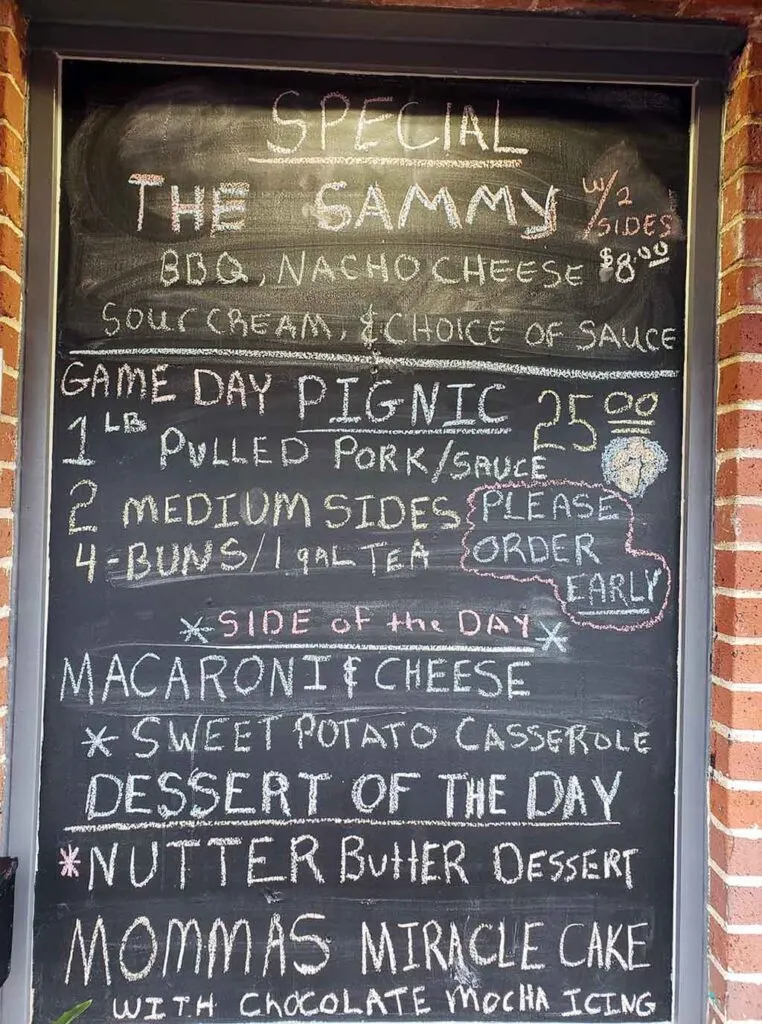 SPECIAL
THE SAMMY W/2 SIDES
BBQ, NACHO CHEESE $8.00
SOUR CREAM, & CHOICE OF SAUCE
GAME DAY PIGNIC 25.00
1 LB PULLED PORK/SAUCE
2 MEDIUM SIDES PLEASE
4-BUNS/1 gAL TEA ORDER
EARLY
*SIDE of the DAY*
MACARONI & CHEESE
*SWEET POTATO CASSEROLE
DESSERT OF THE DAY
*NUTTER ButtER DESSERT
MOMMAS MIRACLE CAKE
WITH CHOCOLATE MOCHA ICING